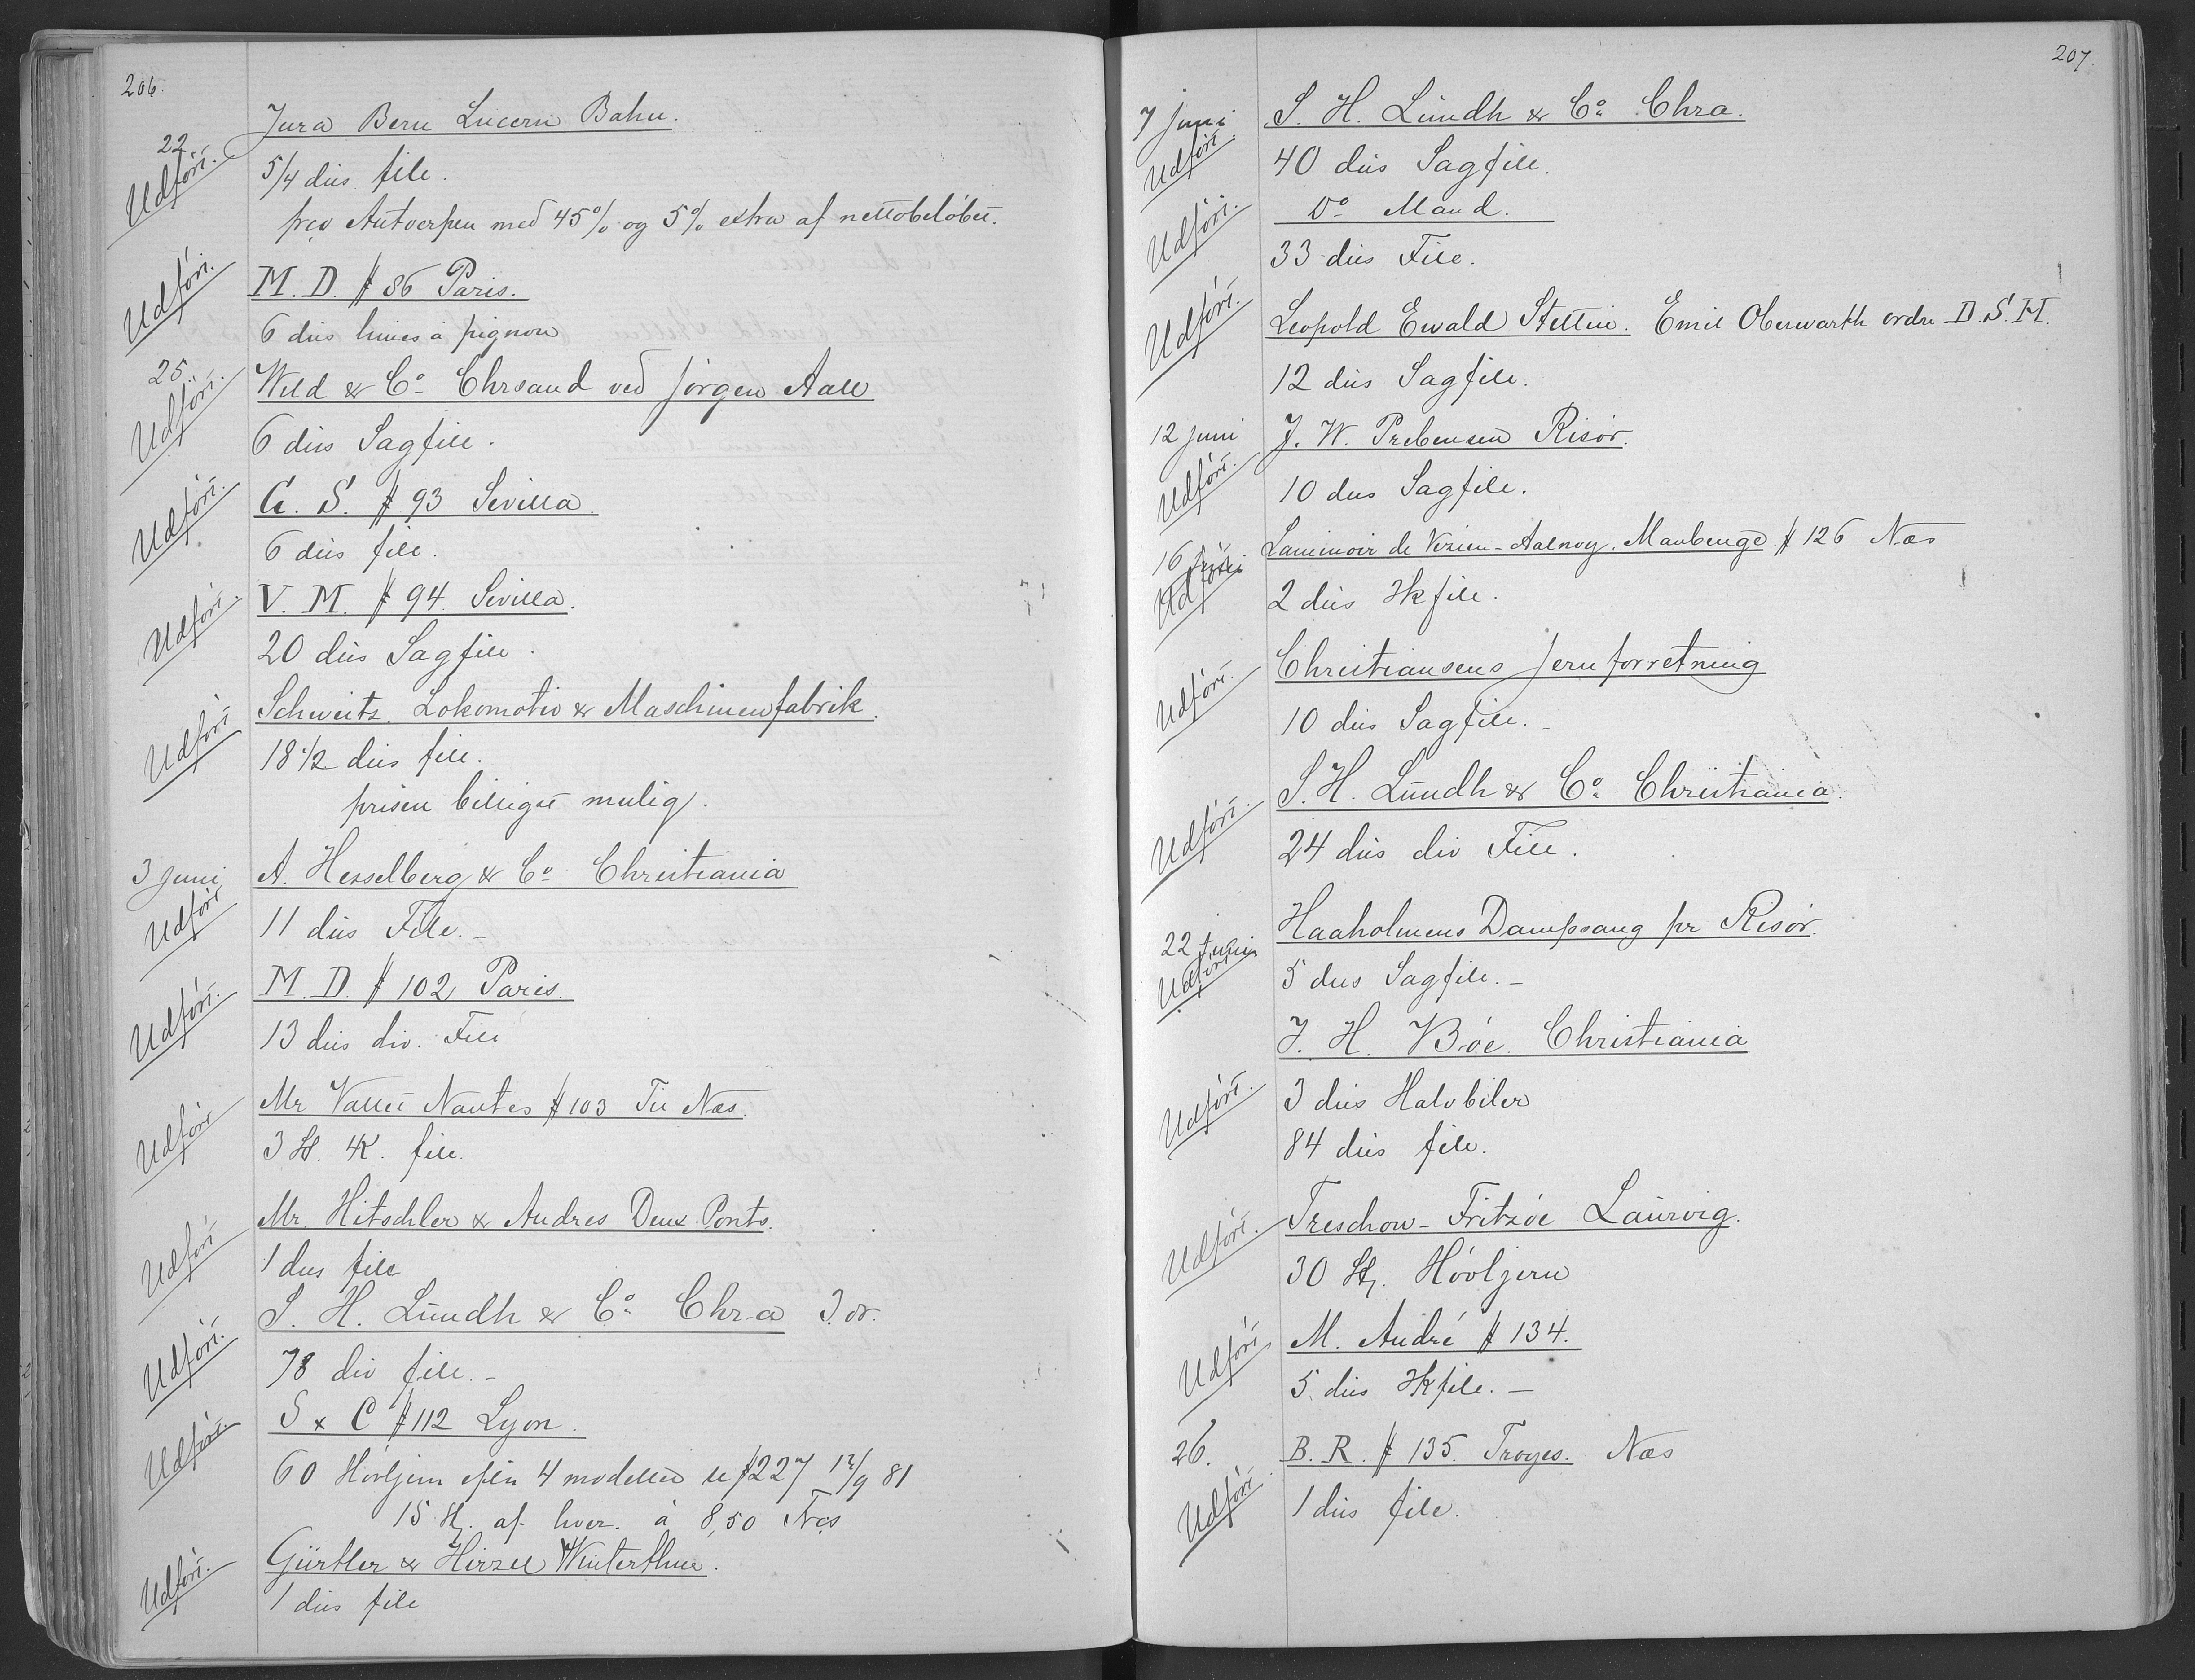 206.
Jura Bern Lucern Bahn.
22.
Udført.
5/4 dus. file.
frco Antverpen med 45% og 5% extra af nettobeløbet.
Udført.
M. D. # 86 Paris.
6 dus limes à pignon
25.
Udført.
Wild & Co Chrsand ved Jørgen Aall
6 dus Sagfile.
Udført.
G. S. # 93 Sevilla.
6 dus file.
Udført.
V. M. # 94 Sevilla.
20 dus Sagfile.
Udført
Schweitz. Lokomotiv & Maschinenfabrik.
18 1/2 dus file.
prisen billigst mulig.
3 Juni
Udført
A. Hesselberg & Co Christiania
11 dus File. –
Udført.
M. D. # 102 Paris.
13 dus div. File
Udført
Mr Vallet Nantes # 103 Til Næs.
3 file.
Udført
Mr. Hitschler & Andres Deux Ponts.
1 dus file
Udført.
S. H. Lundh & Co Chr-a
78 div file. –
Udført.
S & C # 112 Lyon.
60 Høvljern efter 4 modeller se # 227 12/9 81
15 St. af hver. à 8,50 Næs
Udført.
Gürtler & Hirzel Winterthur.
1 dus file
207.
7 Juni
Udført.
S. H. Lundh & Co Chra.
40 dus Sagfile.
Udført.
Do Mand.
33 dus File.
Udført.
Leopold Ewald Stettin. Emil Oberwarth ordre D. S. H.
12 dus Sagfile.
12 Juni
Udført.
J. W. Prebensen Risør.
10 dus Sagfile.
16 Juni
Udført
Laminoir de Vezin-Aulnoy. Maubeuge # 126 Næs
2 dus Hkfile.
Udført.
Christiansens Jernforretning
10 dus Sagfile. –
Udført.
S. H. Lundh & Co Christiania.
24 dus div File.
22 Juni
Udført
Haaholmens Dampsaug pr Risør.
5 dus Sagfile. –
J. H. Bøe. Christiania
Udført.
3 dus Halvbiler
84 dus file.
Udført.
Treschow-Fritzøe Laurvig.
30 St. Høvljern
Udført
M. André # 134.
5 dus Hkfile. –
26.
Udført
B. R. # 135 Troyes. Næs
1 dus file.